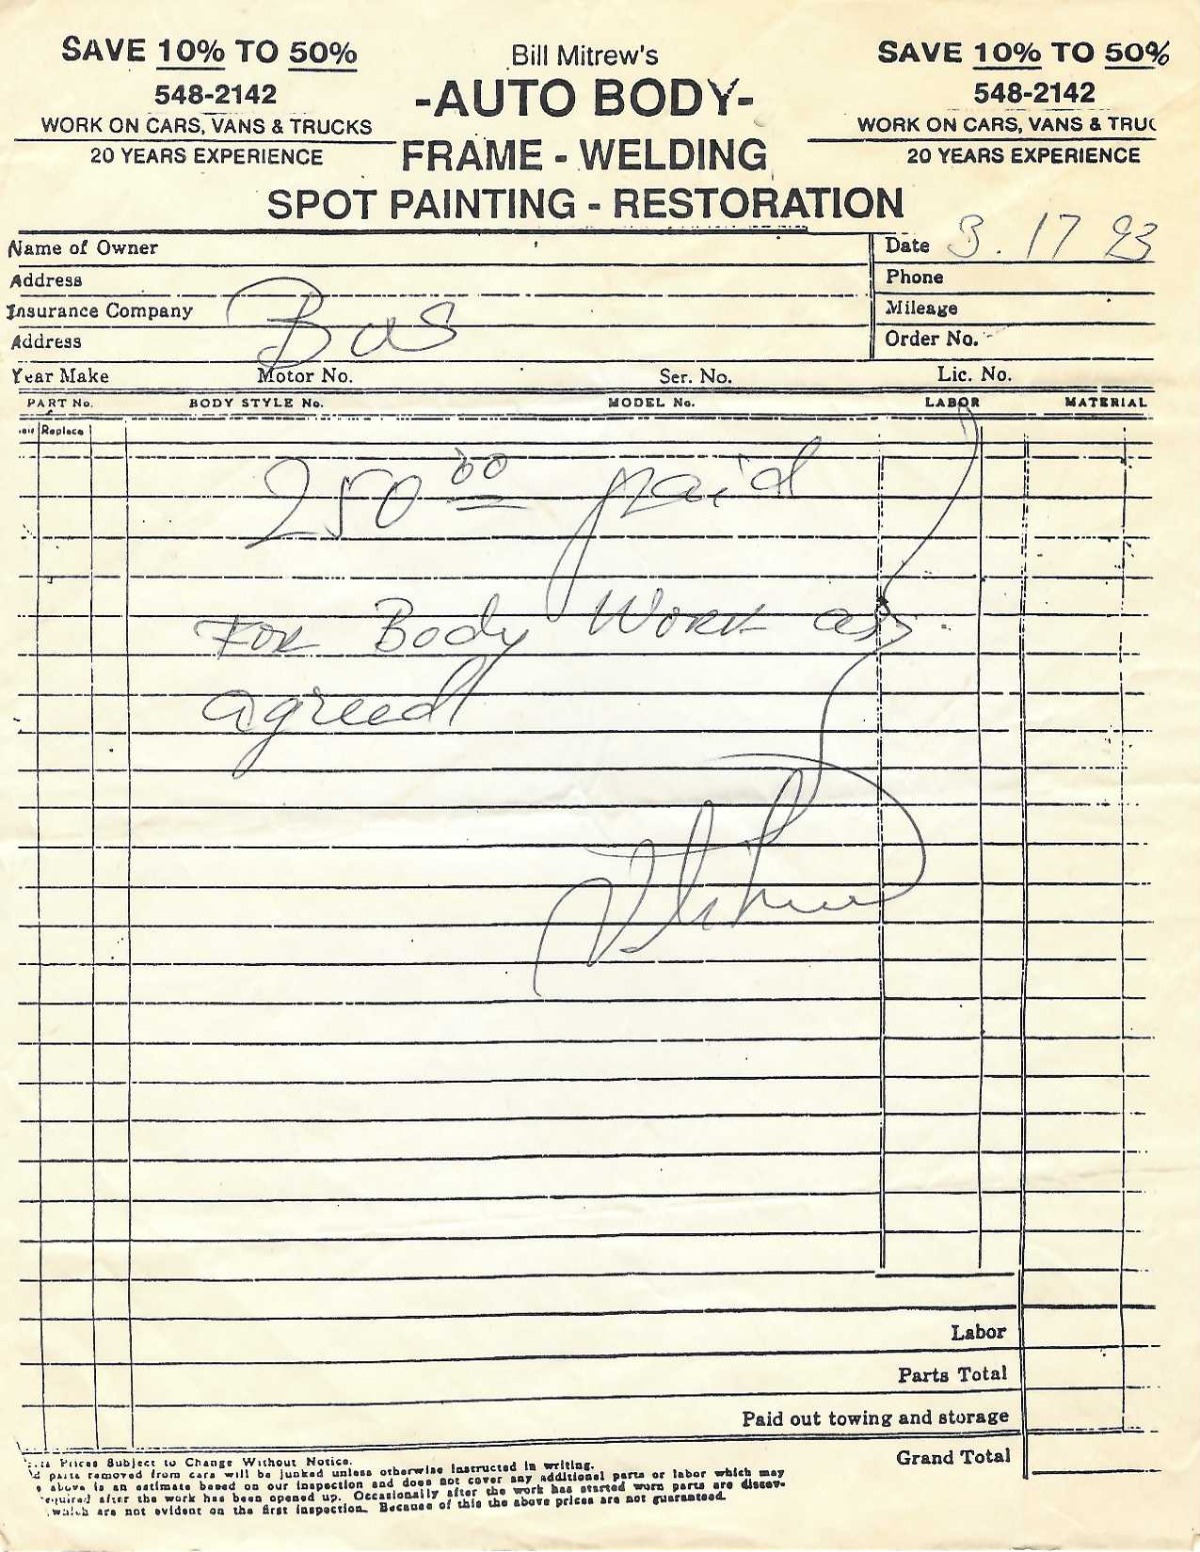 SAVE 10% TO 50%
548-2142
WORK ON CARS, VANS & TRUCKS
20 YEARS EXPERIENCE
Bill Mitrew's
-AUTO BODY-
FRAME - WELDING
SPOT PAINTING - RESTORATION
SAVE 10% TO 50%
548-2142
WORK ON CARS, VANS & TRUC
20 YEARS EXPERIENCE
Name of Owner
Date 3. 17 93
Address
Phone
Insurance Company
Mileage
Address
Order No.
Year Make Motor No. Ser. No. Lic. No.
PART No. BODY STYLE No. MODEL No. LABOR MATERIAL
Replace
250 00 paid
FOR Body Work as
agreed
Labor
Parts Total
Paid out towing and storage
Grand Total
Prices Subject to Change Without Notice.
parts removed from cars will be junked unless otherwise instructed in writing.
above is an estimate based on our inspection and does not cover any additional parts or labor which may
required after the work has been opened up. Occasionally after the work has started worn parts are discov-
which are not evident on the first inspection. Because of this the above prices are not guaranteed.